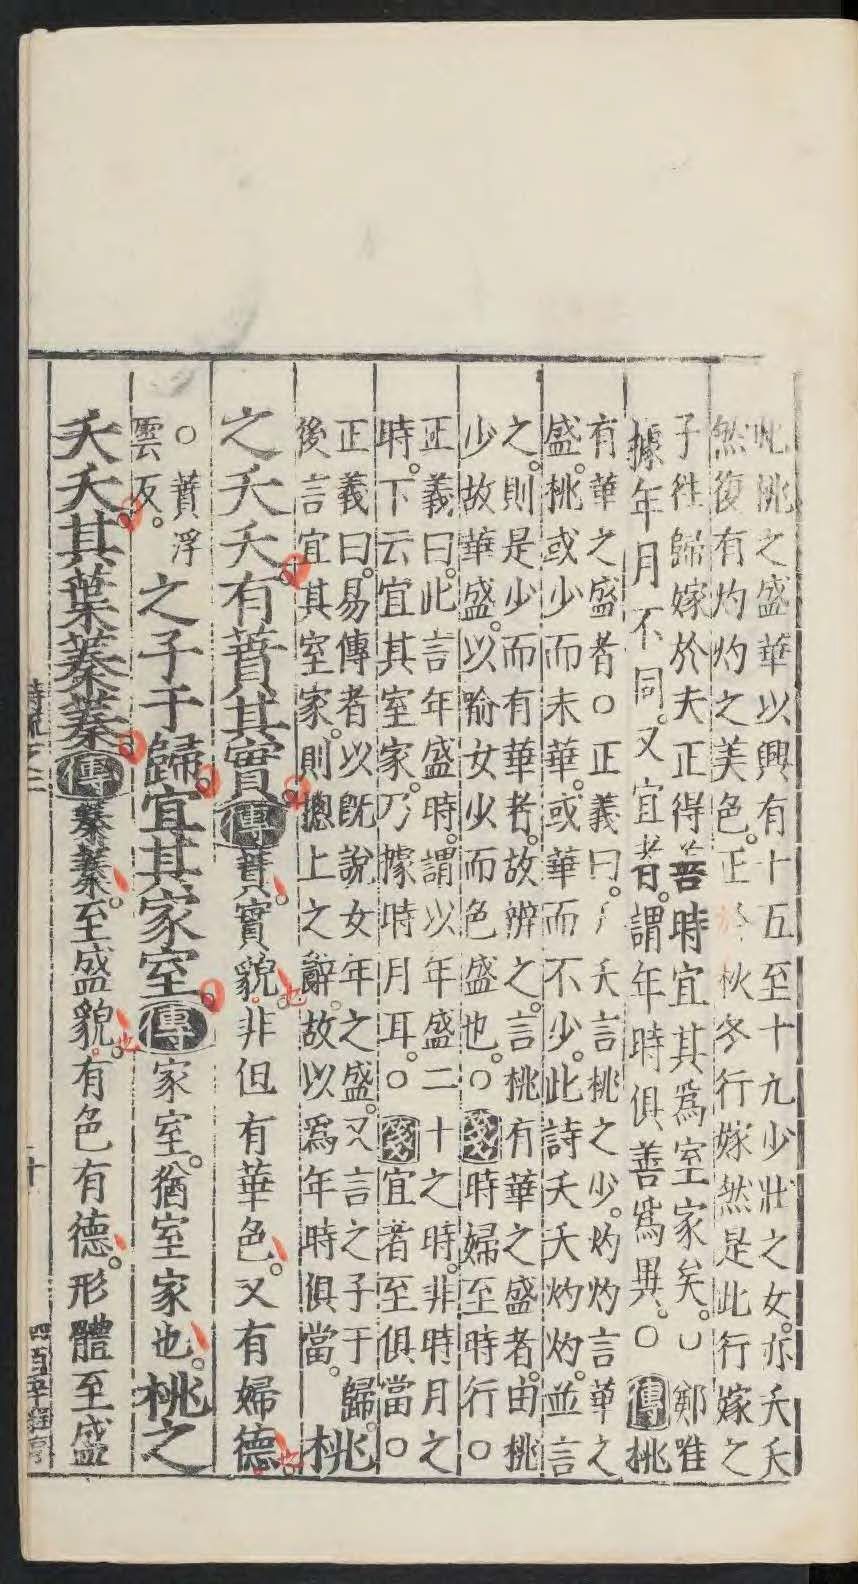 此桃之盛華以興有十五至十九少壯之女亦夭夭
然復有灼灼之美色正於秋冬行嫁然是此行嫁之
子往歸嫁於夫正得善時宜其爲室家矣○鄭唯
據年月不同又宜者謂年時俱善爲異○傳桃
有華之盛者○正義曰夭夭言桃之少灼灼言華之
盛桃或少而未華或華而不少此詩夭夭灼灼並言
之則是少而有華者故辨之言桃有華之盛者由桃
少故華盛以喻女少而色盛也○箋時婦至時行○
正義曰此言年盛時謂以年盛二十之時非時月之
時下云宜其室家乃據時月耳○箋宜者至俱當○
正義曰易傳者以既說女年之盛又言之子于歸
後言宜其室家則總上之辭故以爲年時俱當桃
之夭夭有蕡其實傳蕡實貌非但有華色又有婦德
○蕡浮
雲反之子于歸宜其家室傳家室猶室家也桃之
夭夭其葉蓁蓁傳蓁蓁至盛貌有色有德形體至盛
也
也
也